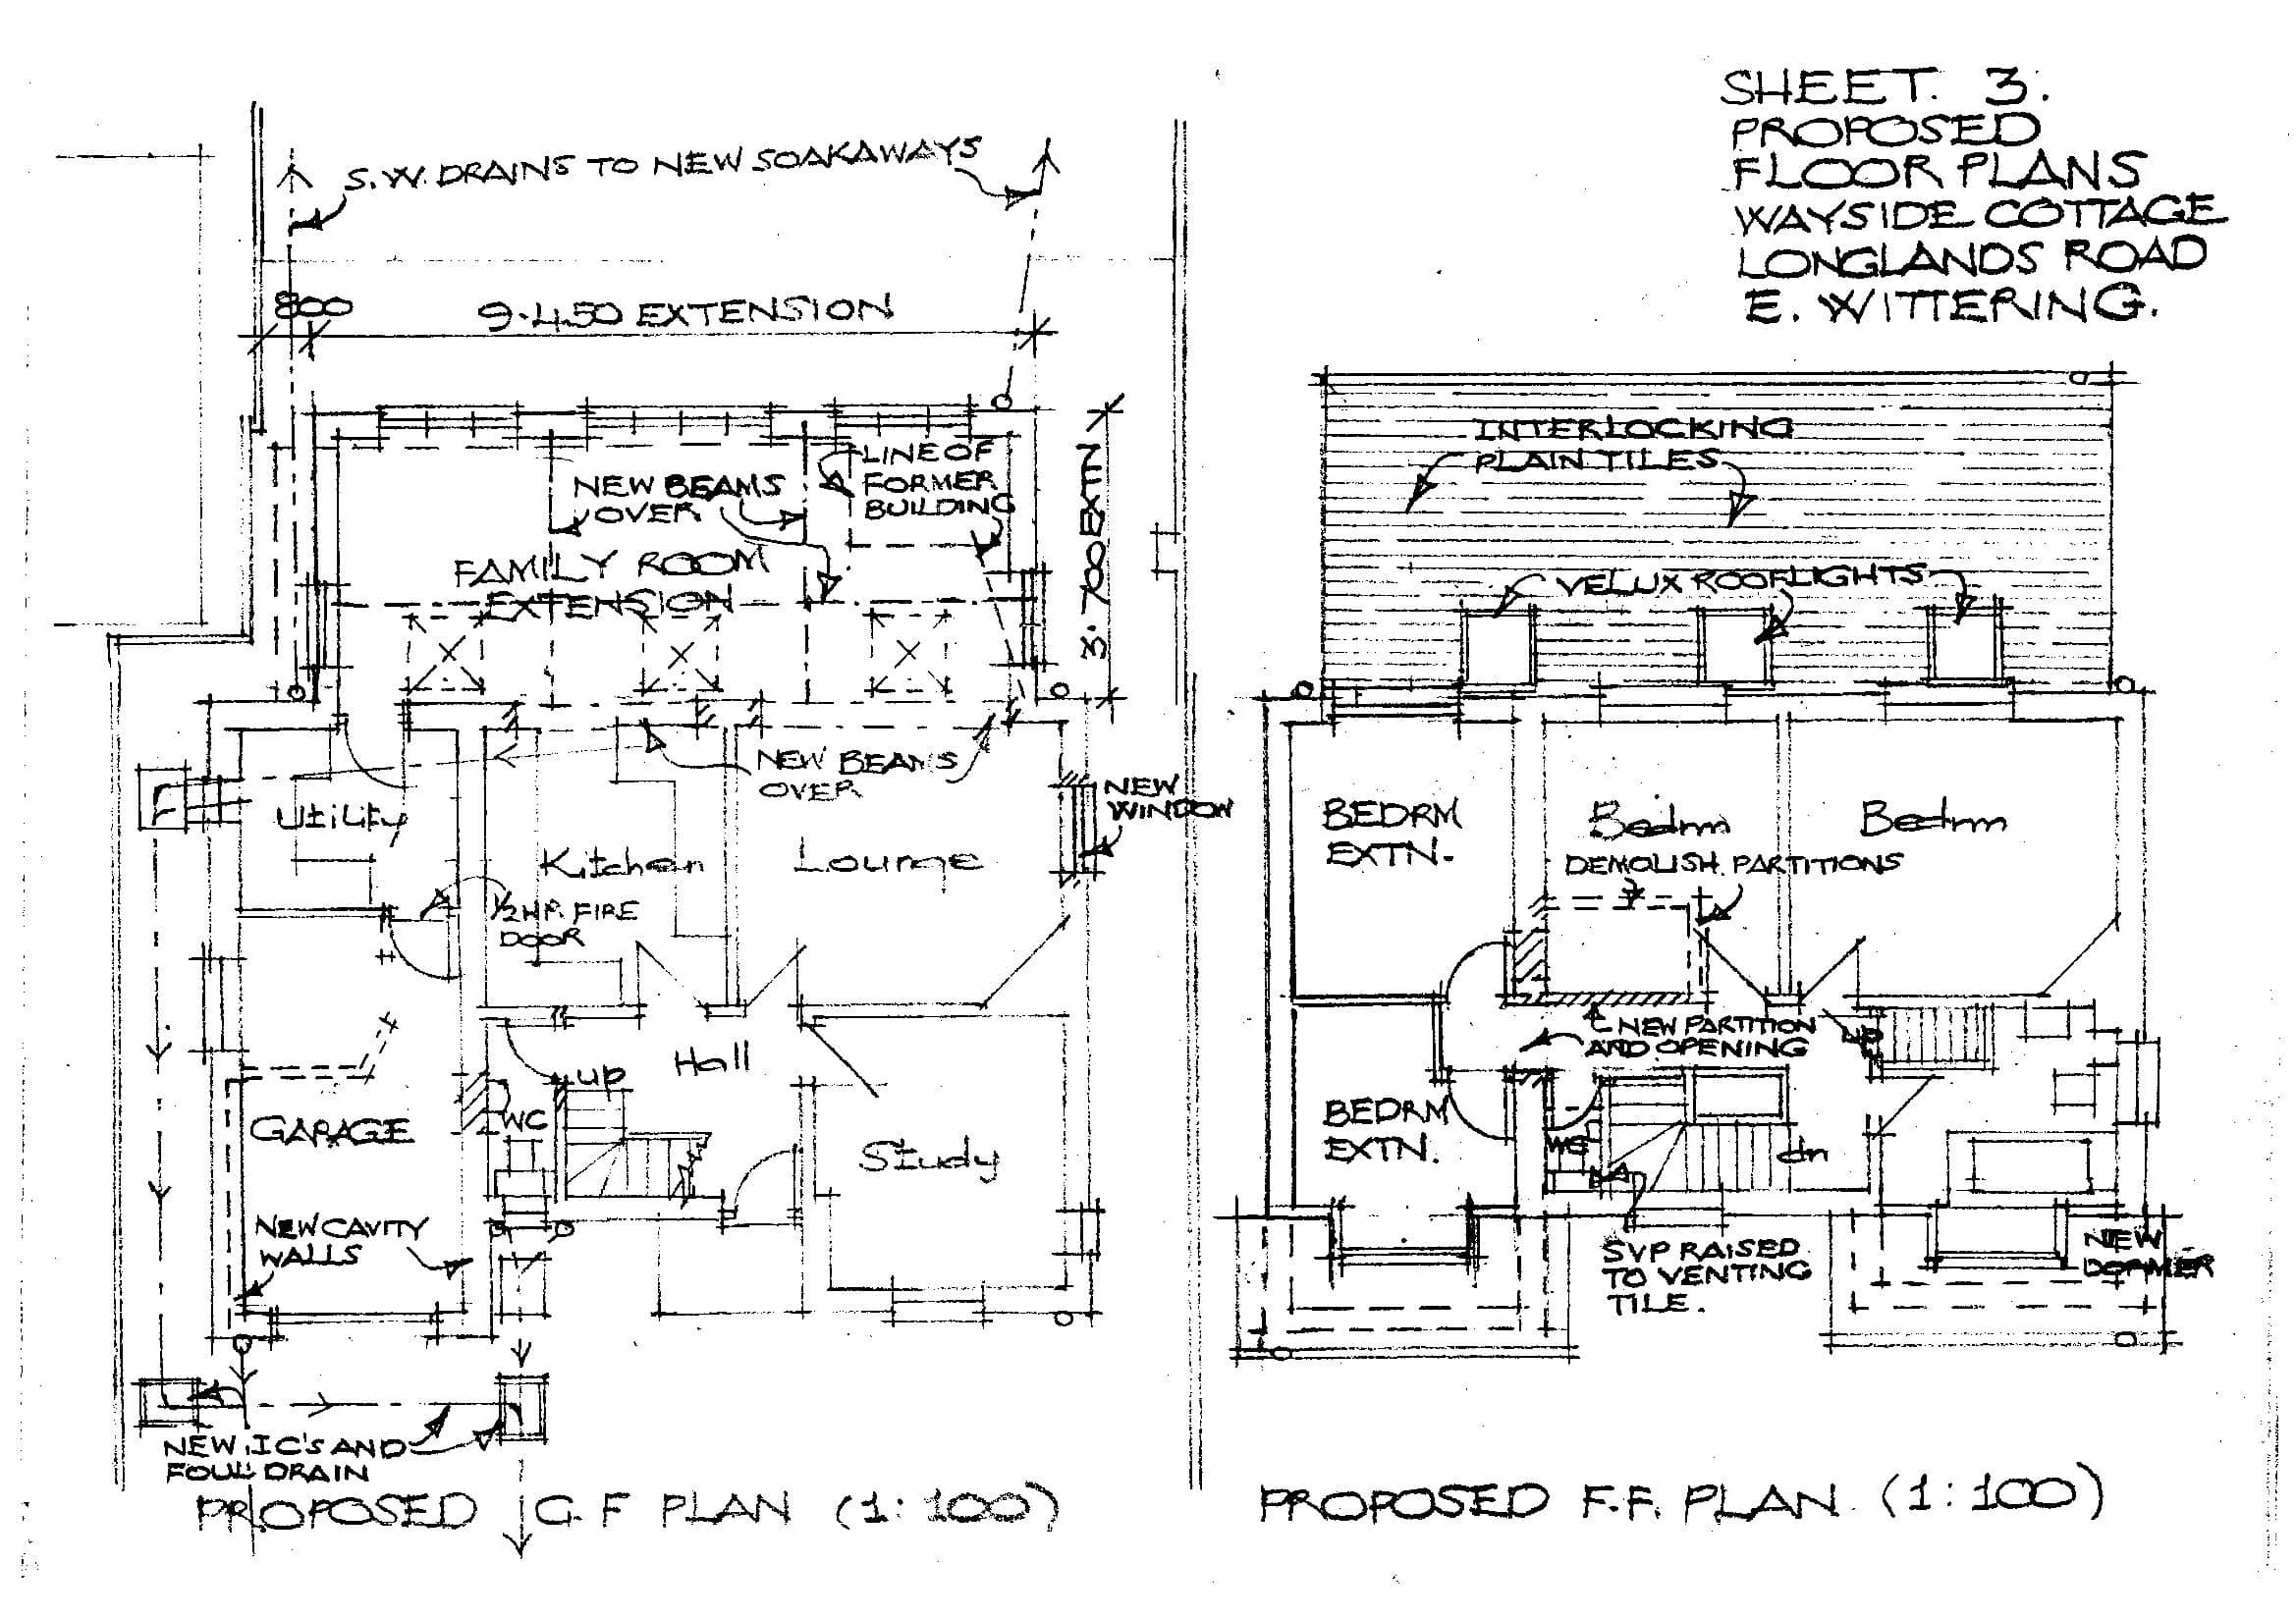 SHEET. 3.
PROPOSED
FLOOR PLANS
WAYSIDE COTTAGE
LONGLANDS ROAD
E. WITTERING.
S.W. DRAINS TO NEW SOAKAWAYS
800
9.450 EXTENSION
3.700 EXTN
NEW BEAMS
OVER
LINE OF
FORMER
BUILDING
FAMILY ROOM
EXTENSION
NEW BEAMS
OVER
NEW
WINDOW
Utility
Kitchen
Lounge
1/2 HR FIRE
DOOR
Hall
up
WC
GARAGE
Study
NEW CAVITY
WALLS
NEW IC'S AND
FOUL DRAIN
PROPOSED G.F PLAN (1:100)
INTERLOCKING
PLAIN TILES
VELUX ROOFLIGHTS
BEDRM
EXTN.
Bedrm
Bedrm
DEMOLISH PARTITIONS
NEW PARTITION
AND OPENING
up
BEDRM
EXTN.
WC
dn
SVP RAISED
TO VENTING
TILE.
NEW
DORMER
PROPOSED F.F. PLAN (1:100)